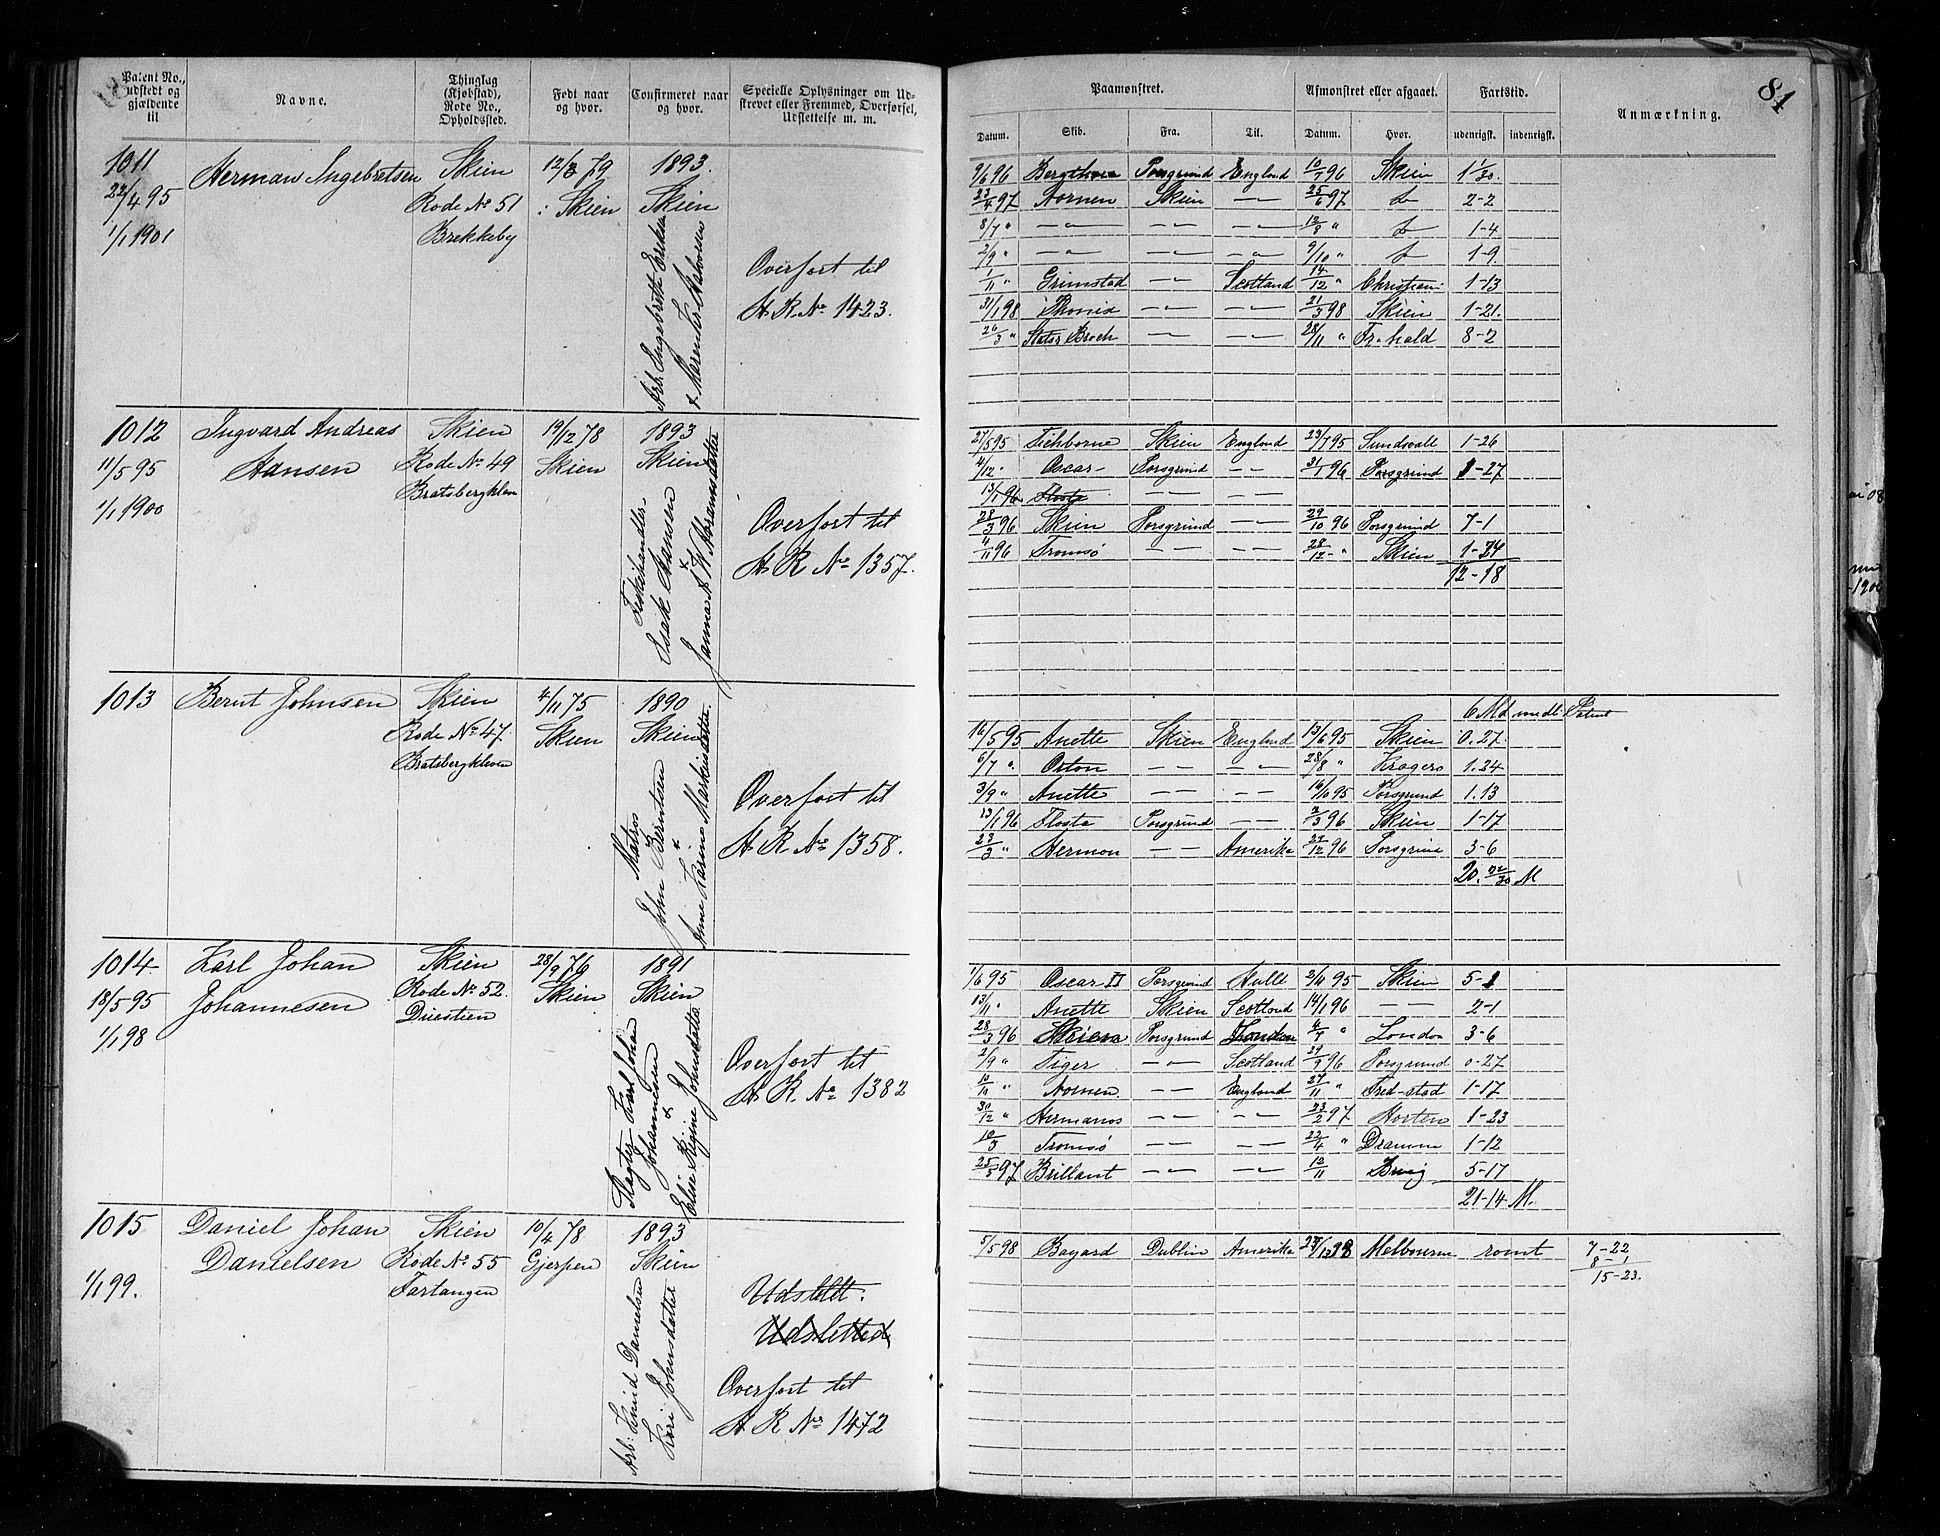 Patent No., udstedt og gjældende til
Navne.
Thinglag (Kjøbstad), Rode No., Opholdssted.
Født naar og hvor.
Confirmeret naar og hvor.
Specielle Oplysninger om Udstrevet eller Fremmed, Overførsel, Udslettelse m. m.
Paamønstret.
Afmønstret eller afgaaet.
Fartstid.
Anmærkning.
81
Datum. Skib. Fra. Til. Datum. Hvor. udenrigsk. indenrigsk.
1011
22/4 95
1/1 1901
Herman Ingebretsen
Skien
Rode No 51
Brekkeby
12/3 79
Skien
1893.
Skien
Arb. Ingebrett Eriksen
+ Maren Kr. Halvorsen
Overført til
H. R. No 1423.
9/6 96 Porsgrund England 10/7 96 Skien 1 1/30.
23/4 97 Nornen Skien — 25/6 97 Do 2-2
8/7 " — — — 12/8 " Do 1-4
2/9 " — — — 9/10 " Do 1-9
1/11 " Grimstad — Scotland 14/12 " Christian: 1-13
31/1 98 — — 21/3 98 Skien 1-21.
26/3 " Stats. Broch — — 28/11 " Fr.hald 8-2
1012
11/5 95
1/1 1900
Ingvard Andreas
Hansen
Skien
Rode No 49
Bratsbergkleven
19/12 78
Skien
1893
Skien
Fiskehandler
Isak Hansen
+
Overført til
H R No 1357.
27/5 95 Tichborne Skien England 23/7 95 Sundsvall 1-26
4/12 - Oscar - Porsgrund — 31/1 96 Porsgrund 1-27
13/1 96 Flosta — —
28/3 96 Skien Porsgrund — 29/10 96 Porsgrund 7-1
4/11 96 Tromsø — — 28/12 - " Skien 1-24
12-18
1013
Bernt Johnsen
Skien
Rode No 47.
Bratsbergkleven
4/11 75
Skien
1890
Skien
Matros
John Berntsen
+
Anne Karine Markusdatter.
Overført til
H. R. No 1358.
6 Md. Patent
16/5 95 Anette Skien England 13/6 95 Skien 0.27
6/7 ". Orion — — 28/8 " Kragerø 1.24
3/9 " Anette — — 95 Porsgrund 1.13
13/1 96 Flosta Porsgrund — 96 Skien 1-17
23/3 " Hermon — Amerika 96 Porsgrund 3-6
20. 22/30 M
1014
18/5 95
1/1 98
Karl Johan
Johannesen
Skien
Rode No 52.
Duestien
28/9 76
Skien
1891
Skien
Slagter Karl Johan
Johannesen
+
Elise Regine Johnsdatter
Overført til
H R. No 1382
1/6 95 Oscar II Porsgrund Hulle 2/11 95 Skien 5-1
13/11 " Anette Skien Scotland 14/1 96 — 2-1
28/3 96 Skiens Porsgrund London " London 3-6
2/9 " Tiger — Scotland 96 Porsgrund 0-27
10/11 " Nornen — England 27/11 " Fred-stad 1-17
30/12 " Hermanos — — 23/2 97 Horten 1-23
10/3 Tromsø — — 22/4 " Dramm 1-12
25/5 97 Brillant — — 12/11 5-17
21-14 M.
1015
1/1 99.
Daniel Johan
Danielsen
Skien
Rode No 55
Fartangen
10/4 78
Gjerpen
1893
Skien
Arb: Knud Danielsen
Kari Johnsdatter
Udslett.
Udslettet
Overført til
H R No 1472
5/5 98 Bayard Dublin Amerika 98 Melbourne rømt 7-22
8-1
15-23.